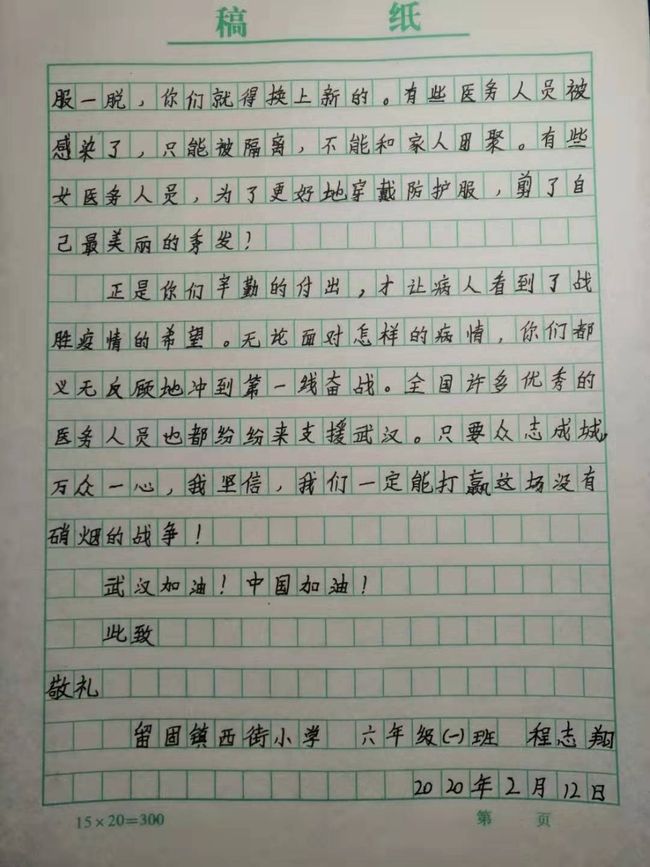 稿 纸
服一脱，你们就得换上新的。有些医务人员被
感染了，只能被隔离，不能和家人团聚。有些
女医务人员，为了更好地穿戴防护服，剪了自
己最美丽的秀发！
正是你们辛勤的付出，才让病人看到了战
胜疫情的希望。无论面对怎样的病情，你们都
义无反顾地冲到第一线奋战。全国许多优秀的
医务人员也都纷纷来支援武汉。只要众志成城，
万众一心，我坚信，我们一定能打赢这场没有
硝烟的战争！
武汉加油！中国加油！
此致
敬礼
留固镇西街小学 六年级(一)班 程志翔
2020年2月12日
15×20=300 第 页